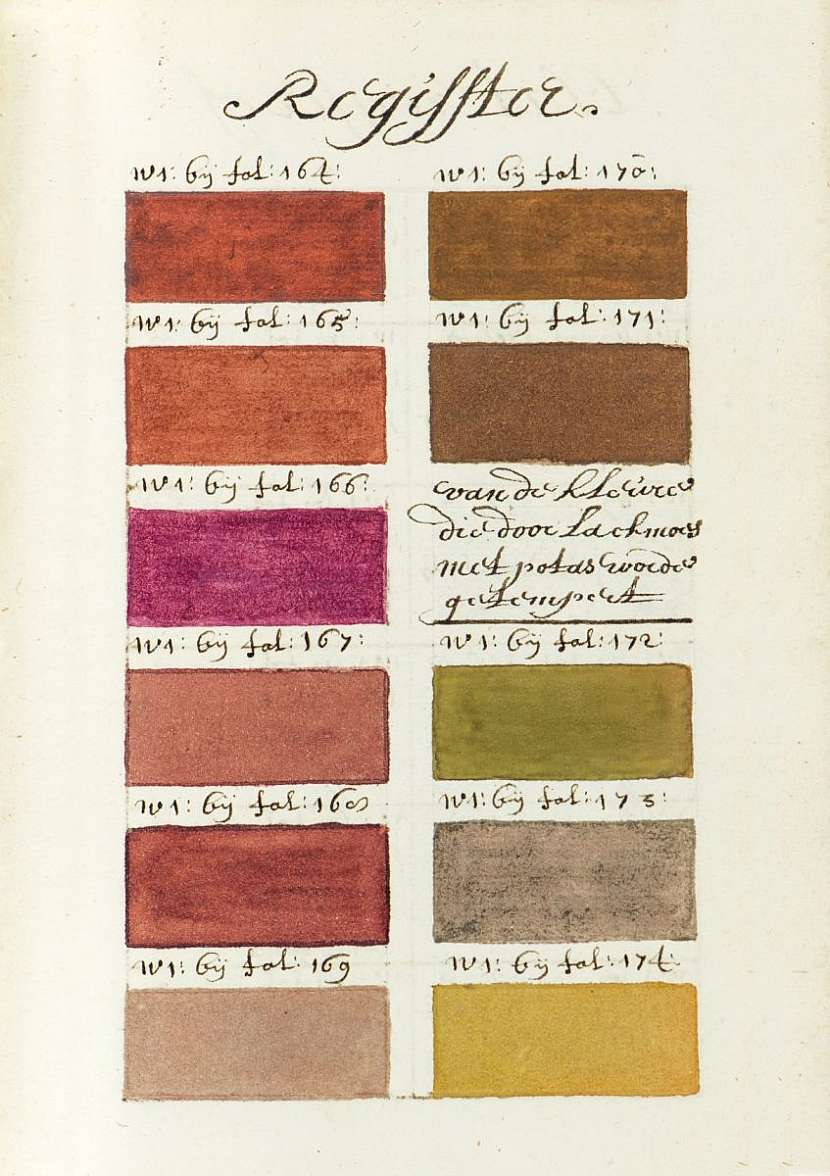 Regisster.
N1: bij fol: 164:
N1: bij fol: 165:
N1: bij fol: 166:
N1: bij fol: 167:
N1: bij fol: 168
N1: bij fol: 169
N1: bij fol: 170:
N1: bij fol: 171:
van de kleure
die door lackmoes
met potas worde
getempert
N1: bij fol: 172:
N1: bij fol: 173:
N1: bij fol: 174: